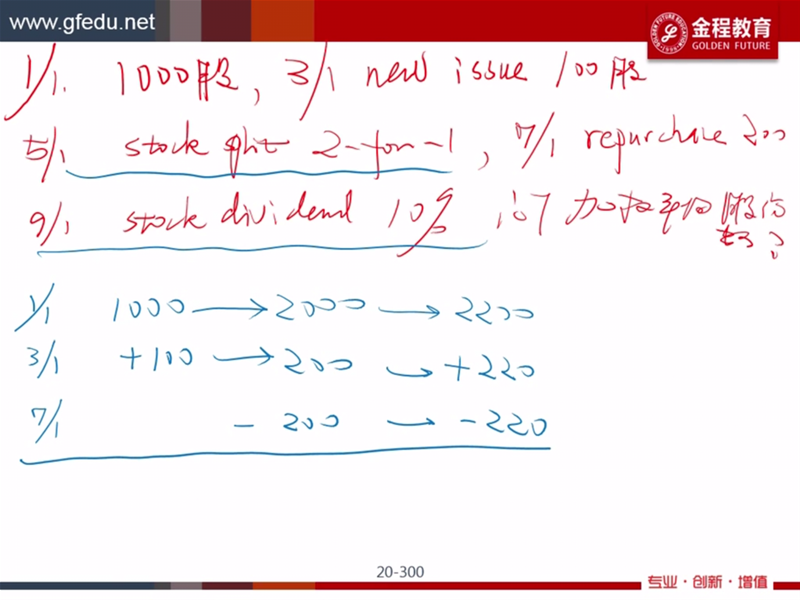 www.gfedu.net
金程教育
GOLDEN FUTURE
1/1. 1000股, 3/1 new issue 100股
5/1 stock split 2-for-1, 7/1 repurchase 200
9/1 stock dividend 10%, 问 加权平均股数?
1/1 1000 → 2000 → 2200
3/1 +100 → 200 → +220
7/1 - 200 → -220
20-300
专业·创新·增值